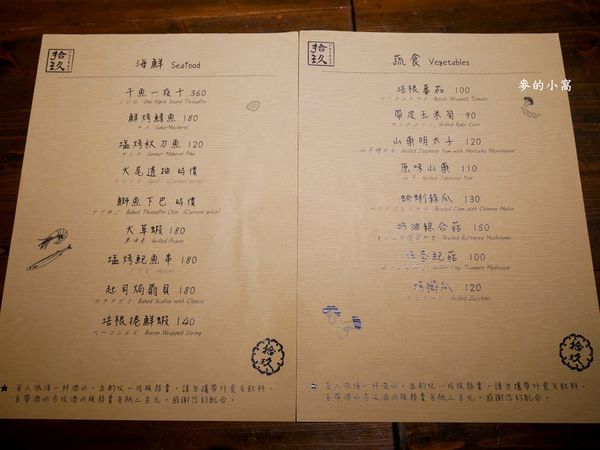 拾玖
海鮮 Seafood
午魚一夜干 360
One Night Stand Threadfin
鮮烤鯖魚 180
サバ Saba-Mackerel
塩烤秋刀魚 120
サンマ Sanmar Makerel Pike
大尾透抽 時價
(Current price)
鮮魚下巴 時價
Baked Threadfin Chin (Current price)
大草蝦 180
Grilled Prawn
塩烤鮑魚串 180
Abalone
起司焗扇貝 180
ホタテガイ Baked Scallop with Cheese
培根捲鮮蝦 140
ベーコンエビ Bacon Wrapped Shrimp
拾玖
★ 每人低消一杯酒水,並酌收一成服務費,請勿攜帶外食及飲料。
自帶酒水另收酒水服務費每瓶三百元,感謝您的配合。
拾玖
蔬食 Vegetables
培根番茄 100
Bacon Wrapped Tomato
帶皮玉米筍 90
Grilled Baby Corn
山藥明太子 120
Grilled Japanese Yam with Mentaiko Mayonnaise
原味山藥 110
Grilled Japanese Yam
蛤蜊絲瓜 130
Broiled Clam with Chinese Melon
奶油綜合菇 150
Broiled Buttered Mushrooms
培根鮑菇 100
King Trumpet Mushroom
烤櫛瓜 120
Grilled Zucchini
拾玖
每人低消一杯酒水,並酌收一成服務費,請勿攜帶外食及飲料。
自帶酒水另收酒水服務費每瓶三百元,感謝您的配合。
麥的小窩